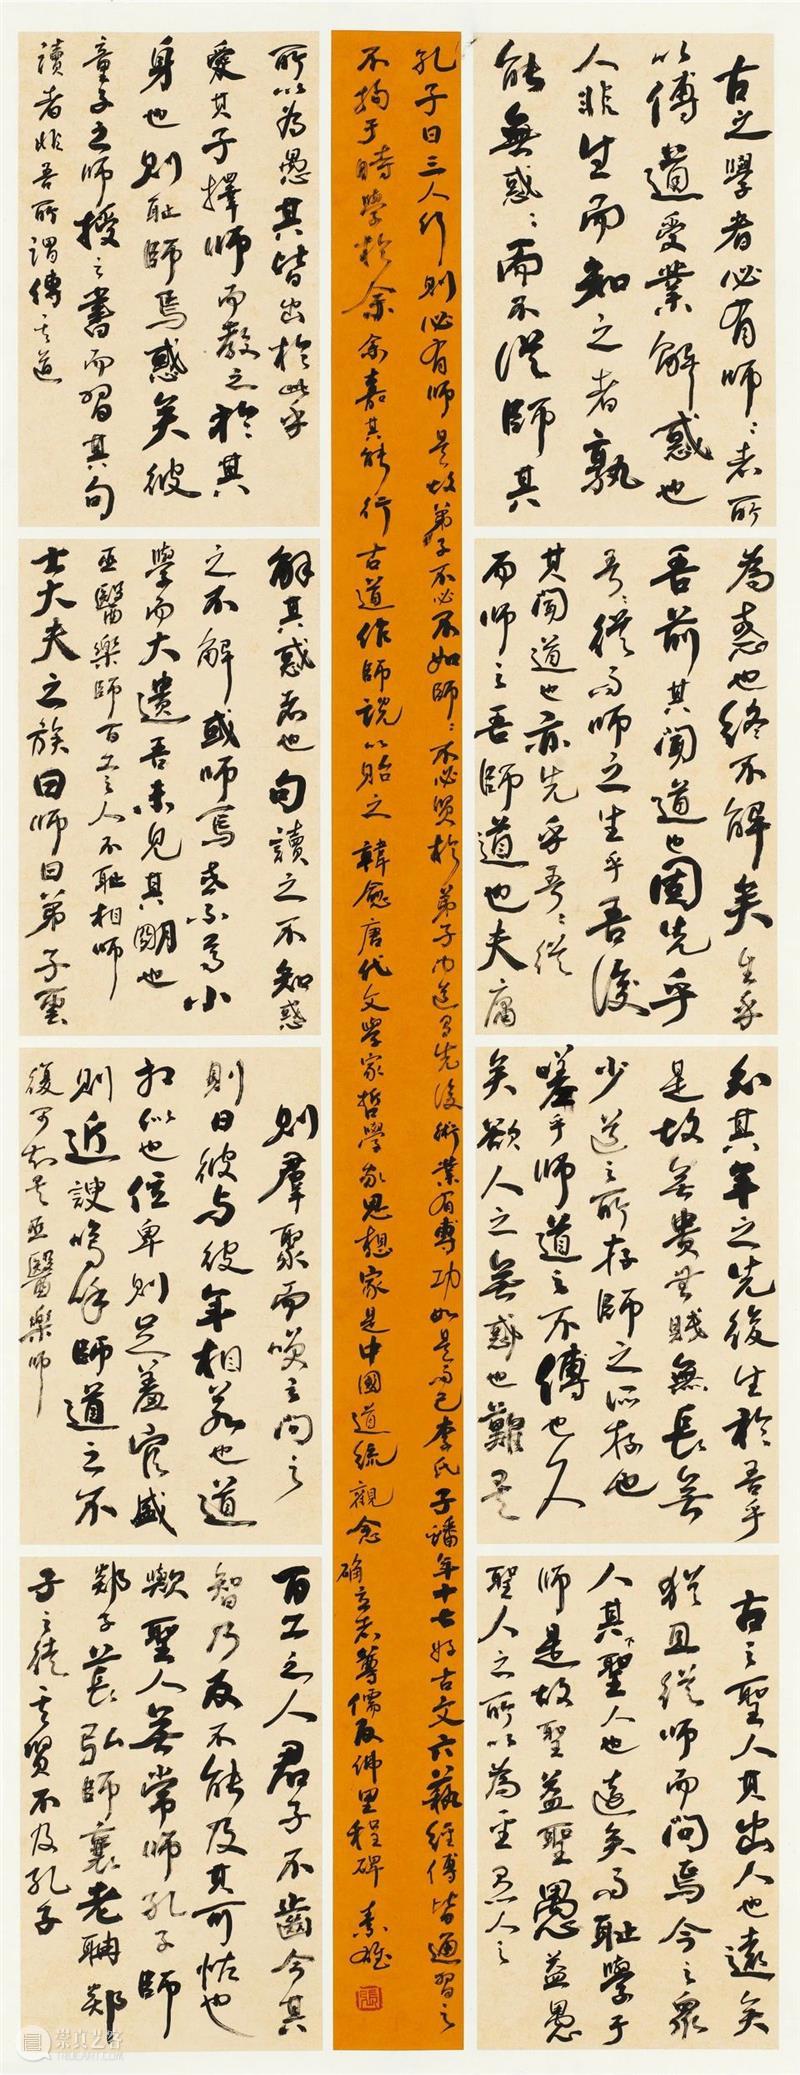 古之學者必有師:者所
以傳道受業解惑也
人非生而知之者孰
能無惑:而不從師其
為惑也終不解矣生乎
吾前其聞道也固先乎
吾:從而師之生乎吾後
其聞道也亦先乎吾:從
而師之吾師道也夫庸
知其年之先後生於吾乎
是故無貴無賤無長無
少道之所存師之所存也
嗟乎師道之不傳也久
矣欲人之無惑也難矣
古之聖人其出人也遠矣
猶且從師而問焉今之眾
人其下聖人也遠矣而耻學于
師是故聖益聖愚益愚
聖人之所以為聖愚人之
所以為愚其皆出於此乎
愛其子擇師而教之於其
身也則耻師焉惑矣彼
童子之師授之書而習其句
讀者非吾所謂傳其道
解其惑者也句讀之不知惑
之不解或師焉或不焉小
學而大遺吾未見其明也
巫醫樂師百工之人不耻相師
士大夫之族曰師曰弟子云
則羣聚而笑之問之
則曰彼與彼年相若也道
相似也位卑則足羞官盛
則近諛嗚呼師道之不
復可知矣巫醫樂師
百工之人君子不齒今其
智乃反不能及其可怪也
歟聖人無常師孔子師
郯子萇弘師襄老聃郯
子之徒其賢不及孔子
孔子曰三人行則必有師是故弟子不必不如師:不必賢於弟子聞道有先後術業有專功如是而已李氏子蟠年十七好古文六藝經傳皆通習之
不拘于時學於余余嘉其能行古道作師說以貽之 韓愈唐代文學家哲學家思想家是中國道統觀念确立者尊儒反佛里程碑 素雄
張
崇真艺客